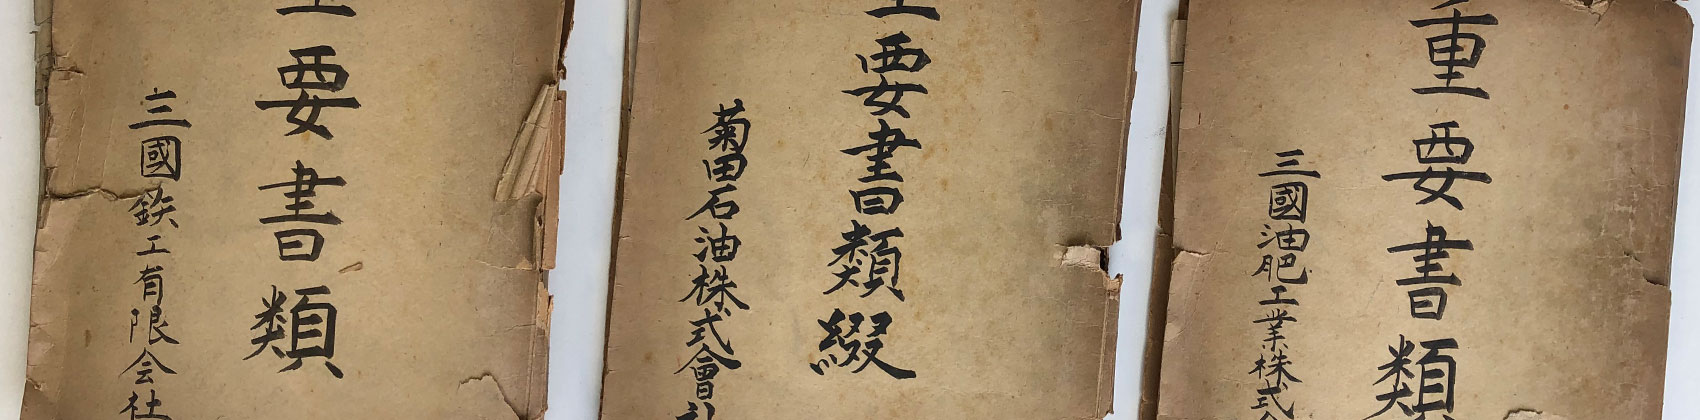 重要書類
三國鉄工有限会社
重要書類綴
菊田石油株式會社
重要書類
三國油肥工業株式会